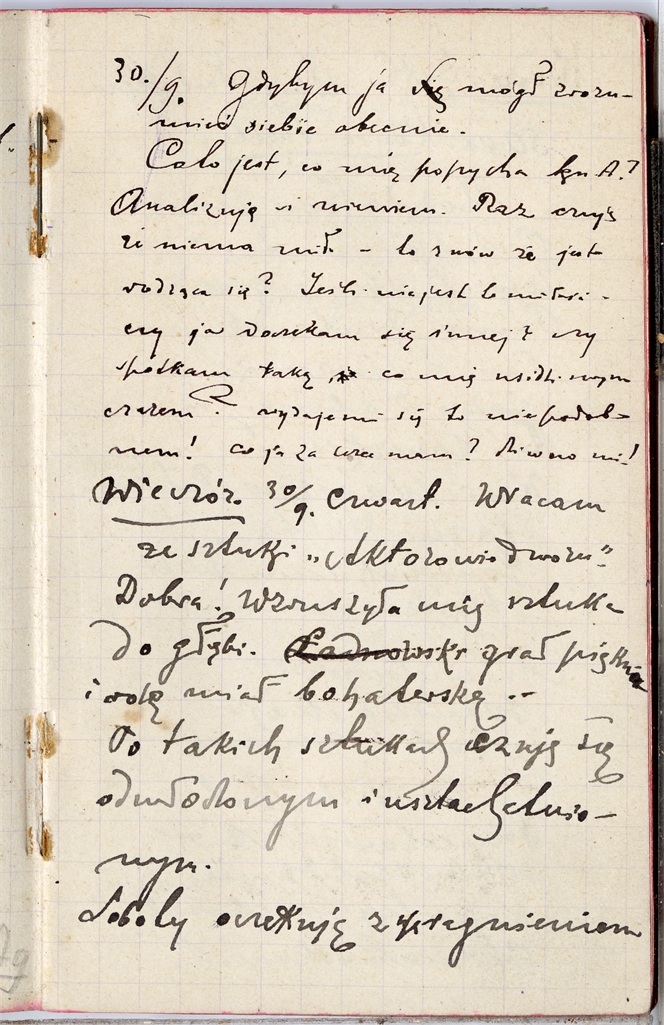 30./9. Gdybym ja się mógł zrozu-
mieć siebie obecnie.
Co to jest, co mię popycha ku A.?
Analizuję i niewiem. Raz czuję
że niema mił. – to znów że jest
rodząca się? Jeśli niejest to miłość -
czy ja doczekam się innej? czy
spotkam taką, co mię usidli swym
czarem? wydajemi się to niepodob-
nem! co ja za                mam? dziwno mi!
Wieczór. 30/9. czwart. Wracam
ze sztuki „Aktorowie dworu".
Dobra! Wzruszyła mię sztuka
do głębi. Ładnowski grał pięknie
i rolę miał bohaterską ..
Po takich sztukach czuję się
odmłodzonym i uszlachetnio-
nym.
Soboty oczekuję z upragnieniem